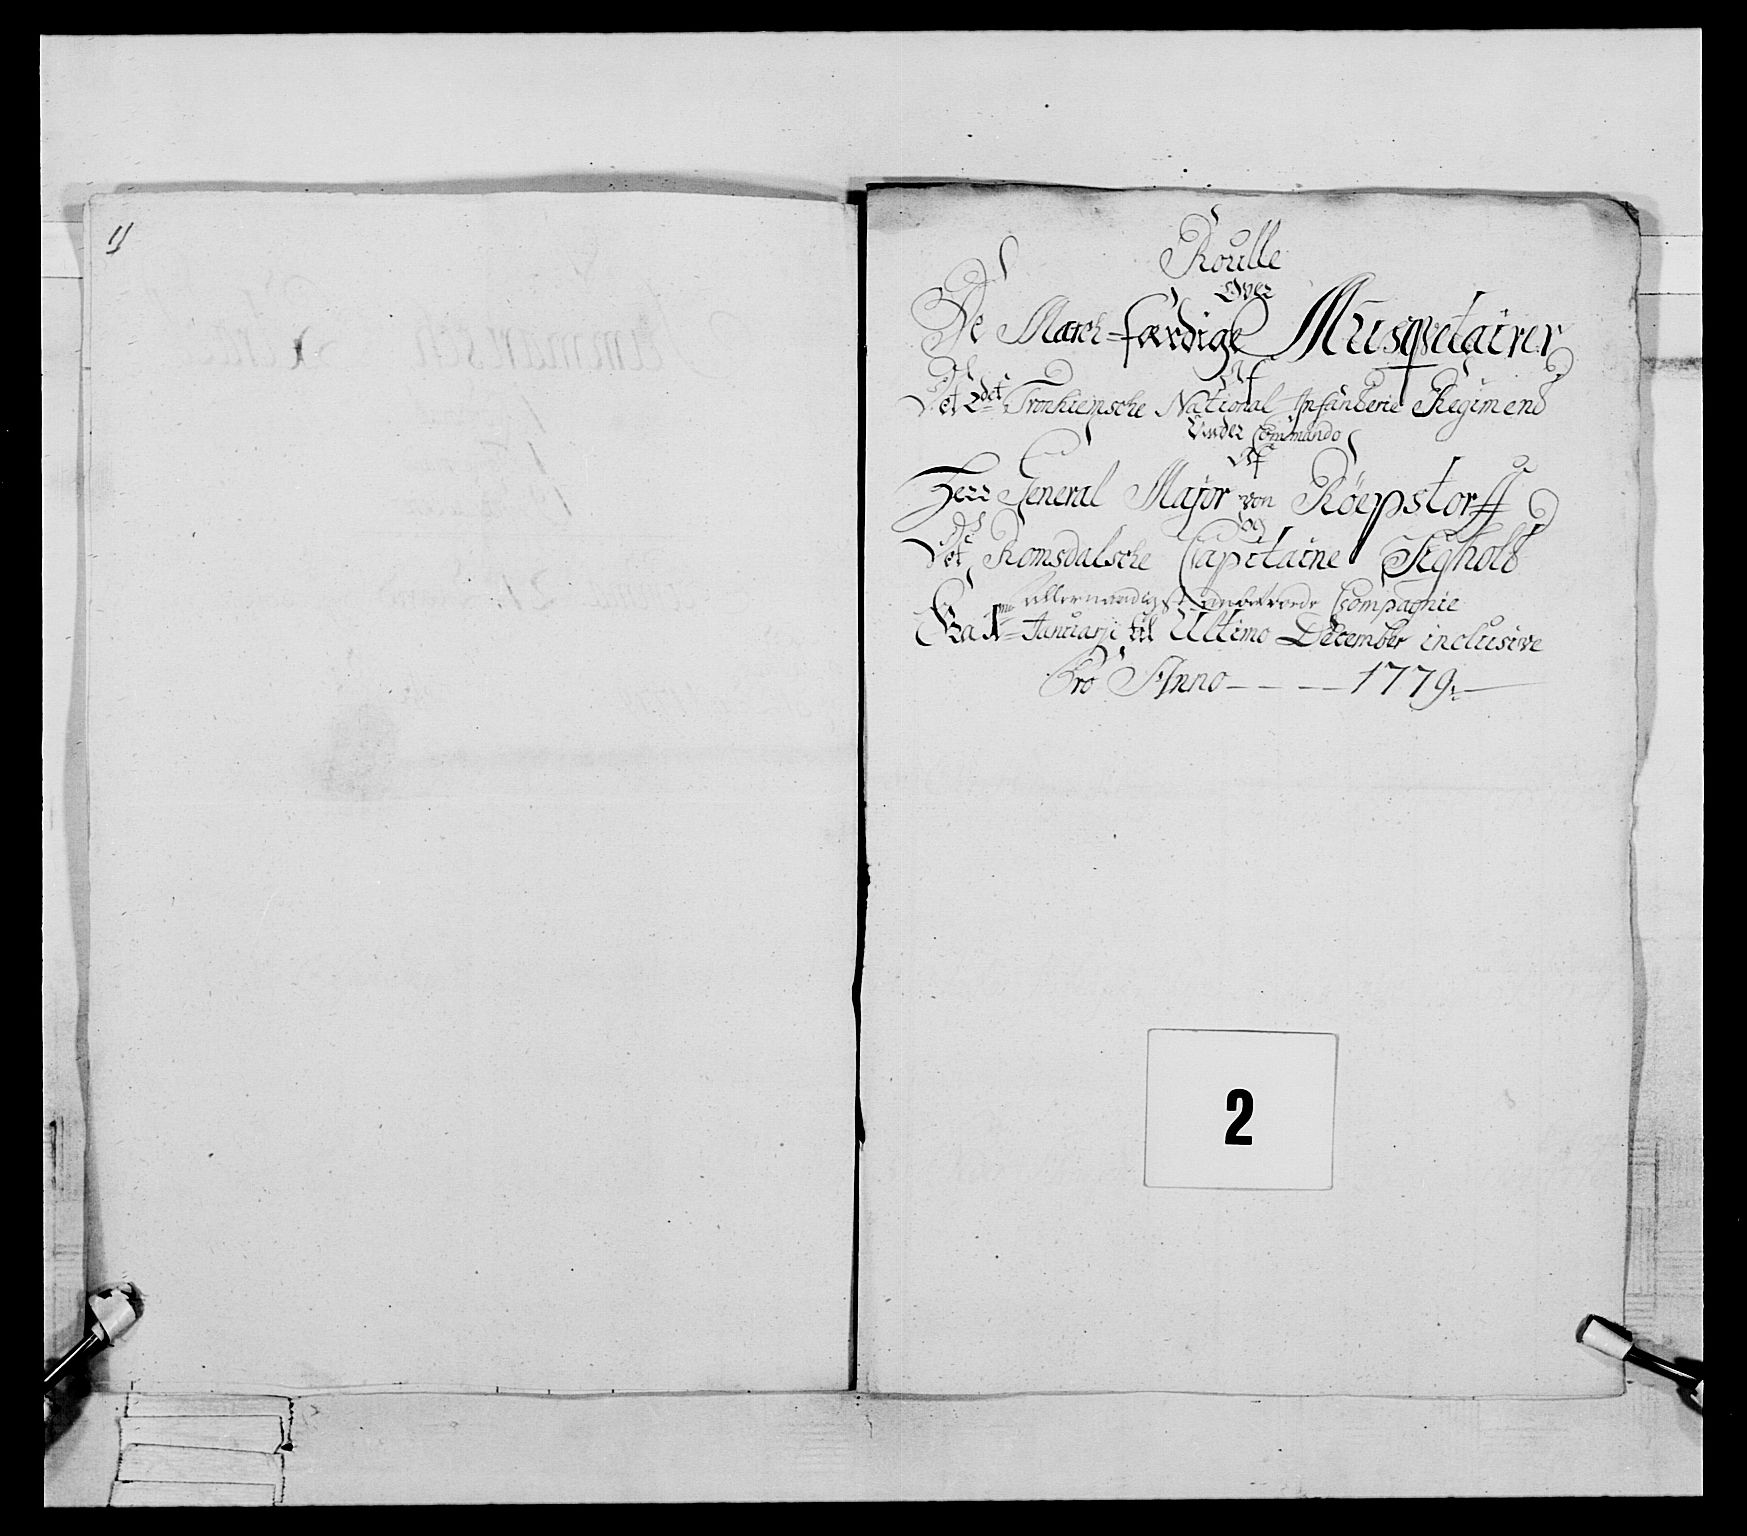 Roulle
Over
De March-færdige Musqvetairer
Af
Det 2det Tronhiemsche National Infanterie Regiment
Under Commando
Af
Herr General Major von Röepstorff
og
Det Romsdalsche Capitaine Sigholt
allernaadigst anbetroede Compagnie
Fra 1me Januarji til Ultimo December inclusive
Pro Anno - - - 1779.
2